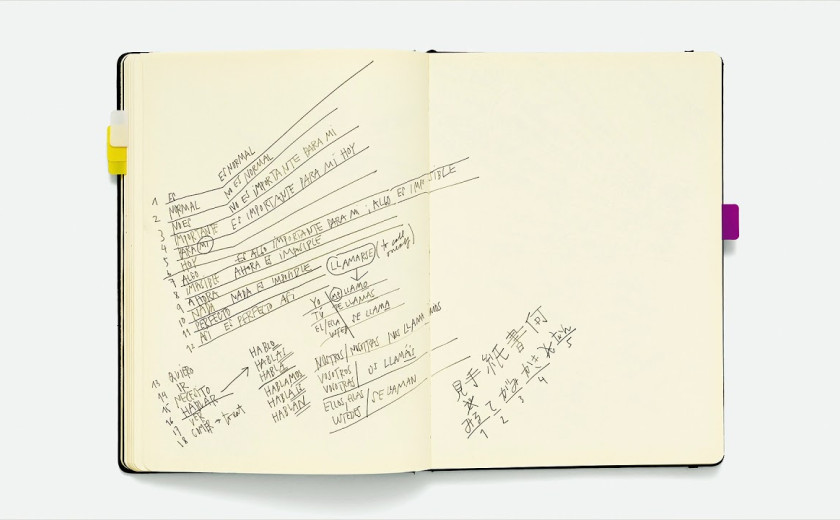 ES NORMAL
NO ES NORMAL
NO ES IMPORTANTE PARA MI
ES IMPORTANTE PARA MÍ HOY
ES ALGO IMPORTANTE PARA MI ¿ALGO ES IMPOSIBLE
AHORA ES IMPOSIBLE
NADA ES IMPOSIBLE
ASI ES PERFECTO ASI
1 ES
2 NORMAL
3 NO ES
4 IMPORTANTE
5 PARA MÍ
6 HOY
7 ALGO
8 IMPOSIBLE
9 AHORA
10 NADA
11 PERFECTO
12
LLAMARSE (to call oneself)
YO ME LLAMO
TÚ TE LLAMAS
EL/ELLA SE LLAMA
USTED
NOSOTROS/NOSOTRAS NOS LLAMAMOS
VOSOTROS OS LLAMÁIS
VOSOTRAS
ELLOS, ELLAS SE LLAMAN
USTEDES
13 QUIERO
14 IR
15 NECESITO
16 HABLAR
17 VER
18 COMER → to eat
HABLO
HABLAS
HABLA
HABLAMOS
HABLÁIS
HABLAN
見手紙書何
みるてがみかく
1 2 3 4 5